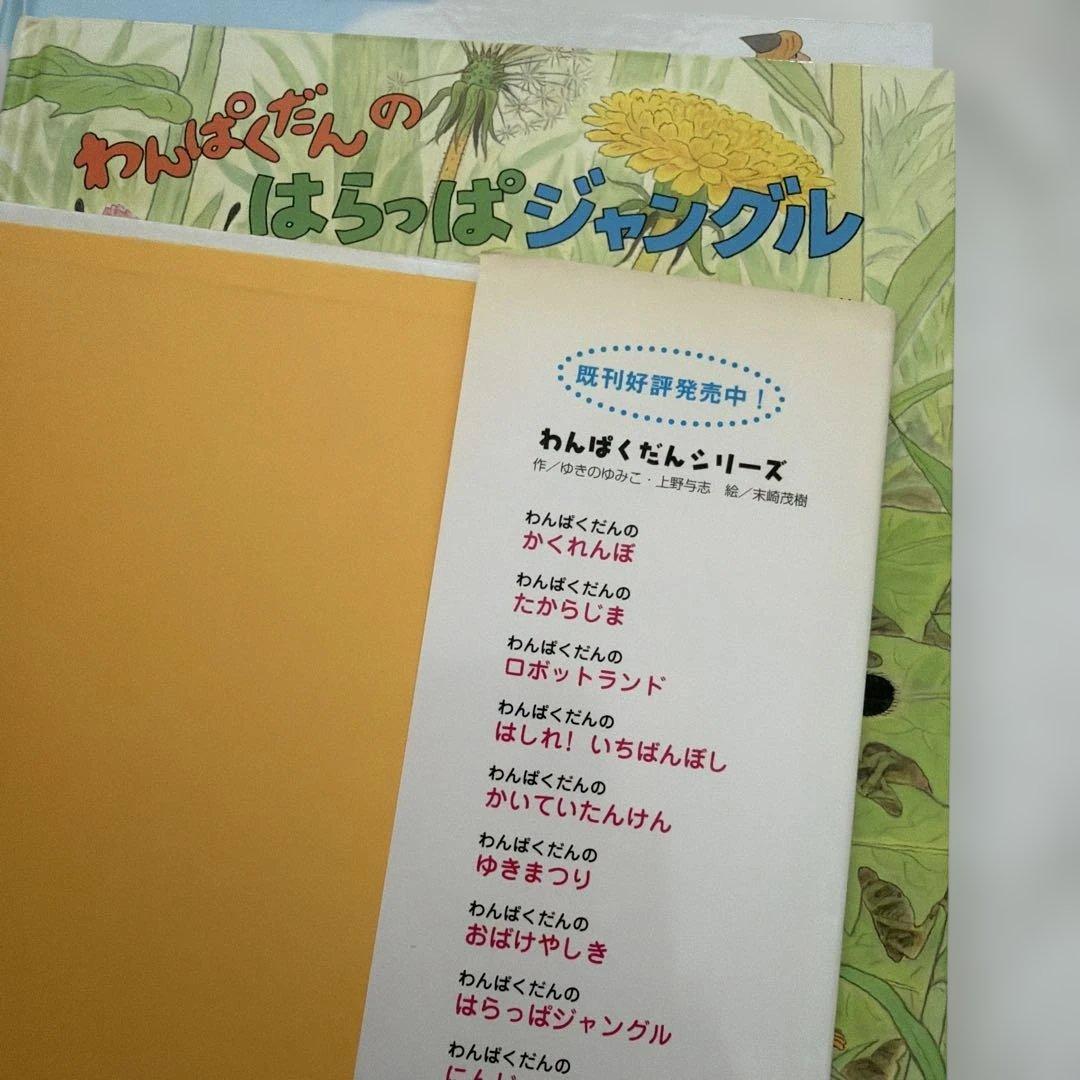 わんぱくだんの
はらっぱジャングル
既刊好評発売中！
わんぱくだんシリーズ
作／ゆきのゆみこ・上野与志　絵／末崎茂樹
わんぱくだんの
かくれんぼ
わんぱくだんの
たからじま
わんぱくだんの
ロボットランド
わんぱくだんの
はしれ！いちばんぼし
わんぱくだんの
かいていたんけん
わんぱくだんの
ゆきまつり
わんぱくだんの
おばけやしき
わんぱくだんの
はらっぱジャングル
わんぱくだんの